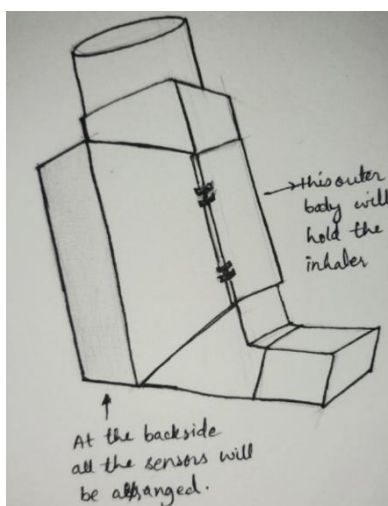 →this outer
body will
hold the
inhaler
At the backside
all the sensors will
be arranged.